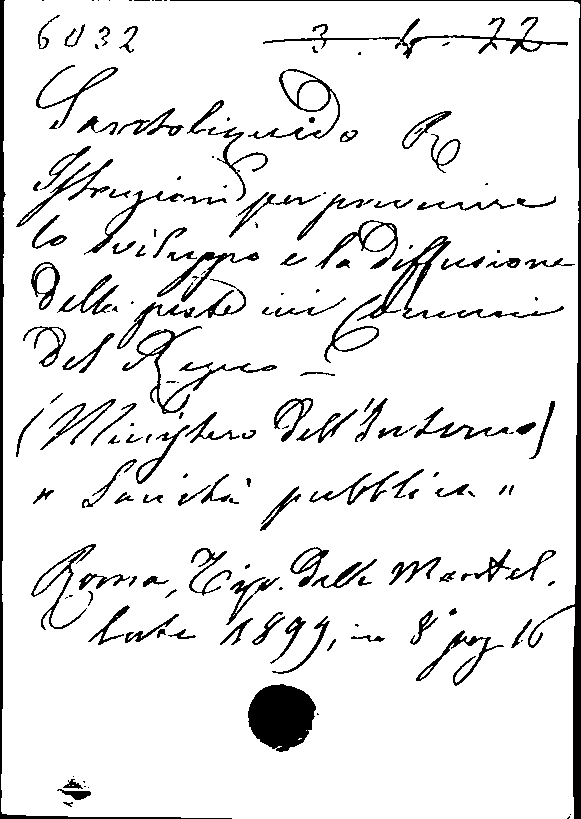 6032 3. 4. 22
Santoliquido R
Istruzioni per prevenire
lo sviluppo e la diffusione
della peste nei Comuni
del Regno –
(Ministero dell'Interno)
" Sanità pubblica "
Roma, Tip. delle Mantel.
late 1899, in 8° pag 16